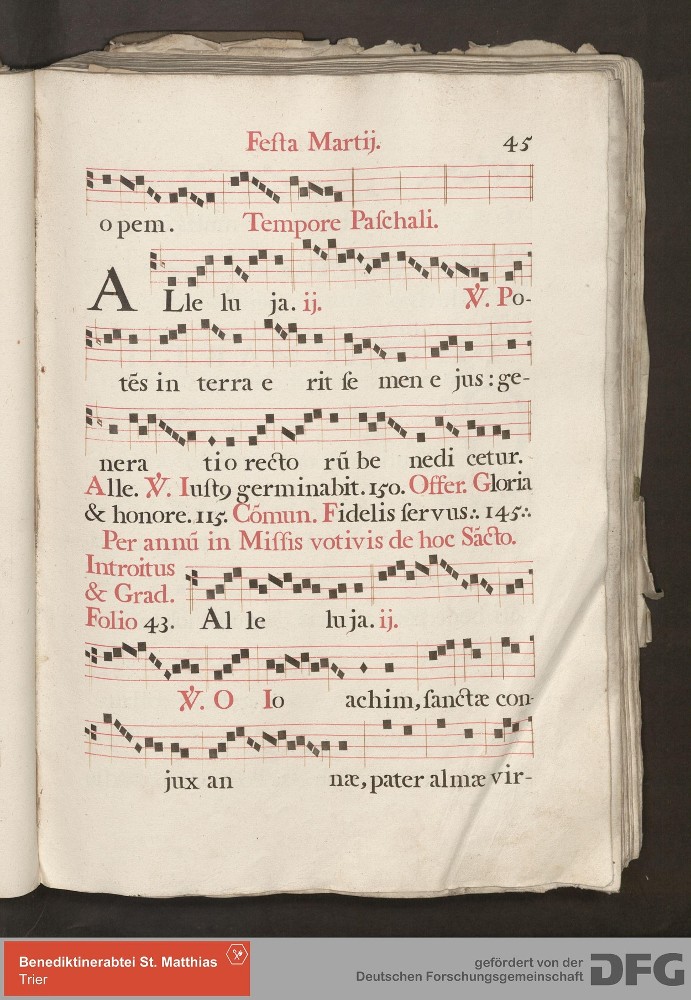 Feſta Martij. 45
opem. Tempore Paſchali.
ALle lu ja. ij. ℣. Po-
tẽs in terra e rit ſe men e jus: ge-
nera tio recto rũ be nedi cetur.
Alle. ℣. Iuſtꝰ germinabit. 150. Offer. Gloria
& honore. 115. Cõmun. Fidelis ſervus∴ 145∴
Per annũ in Miſſis votivis de hoc Sãcto.
Introitus
& Grad.
Folio 43. Al le luja. ij.
℣. O Io achim, ſanctæ con-
jux an næ, pater almæ vir-
Benediktinerabtei St. Matthias
Trier
gefördert von der
Deutschen Forschungsgemeinschaft DFG